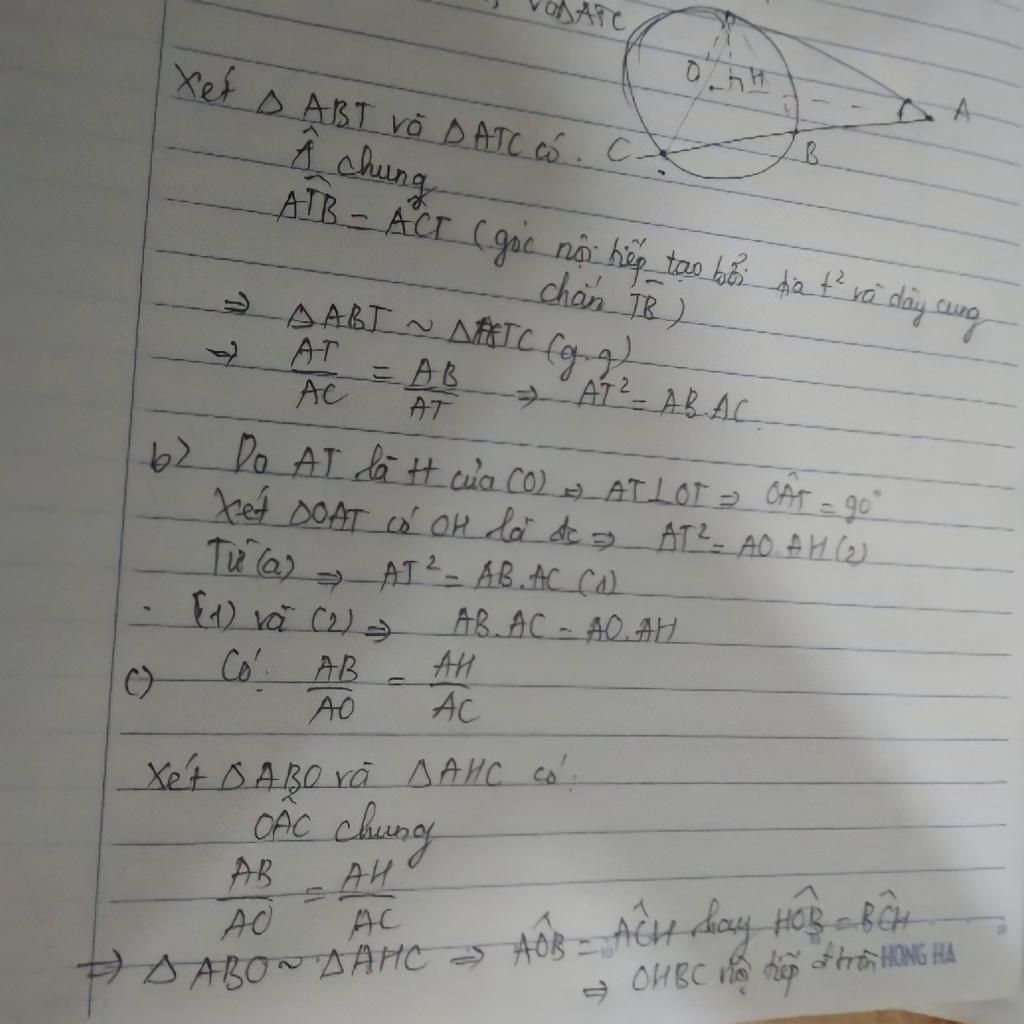 và ΔATC
O
H
A
B
C
Xét Δ ABT và Δ ATC có.
Â chung
ATB = ACT (góc nội tiếp tạo bởi tia t² và dây cung
chắn TB)
⇒ ΔABT ~ ΔATC (g.g)
⇒ AT/AC = AB/AT ⇒ AT² = AB.AC
b) Do AT là tt của (O) ⇒ AT⊥OT ⇒ OÂT = 90°
Xét ΔOAT có OH là đc ⇒ AT² = AO.AH (2)
Từ (a) ⇒ AT² = AB.AC (1)
(1) và (2) ⇒ AB.AC = AO.AH
c) Có: AB/AO = AH/AC
Xét Δ ABO và Δ AHC có:
OÂC chung
AB/AO = AH/AC
⇒ Δ ABO ~ ΔAHC ⇒ AÔB = AĈH hay HÔB = BĈH
⇒ OHBC nội tiếp đ tròn
HONG HA